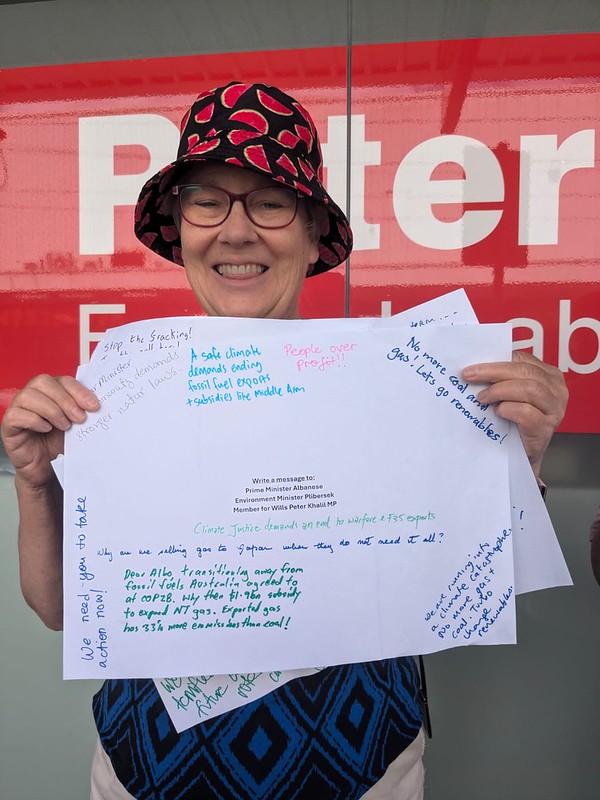 Peter
Stop the fracking!
Minister
demands
stronger natur laws.
A safe climate
demands ending
fossil fuel exports
+ subsidies like Middle Arm
People over
profit!!
No more coal and
gas! Lets go renewables!
Write a message to:
Prime Minister Albanese
Environment Minister Plibersek
Member for Wills Peter Khalil MP
Climate Justice demands an end to warfare & F35 exports
Why are we selling gas to Japan when they do not need it all?
Dear Albo, transitioning away from
fossil fuels Australia agreed to
at COP28. Why then $1.9bn subsidy
to expand NT gas. Exported gas
has 33% more emmissions than coal!
We need you to take
action now!
We are running into
a climate catastrophe.
No more gas &
coal. Two
change
renewables.
We
future